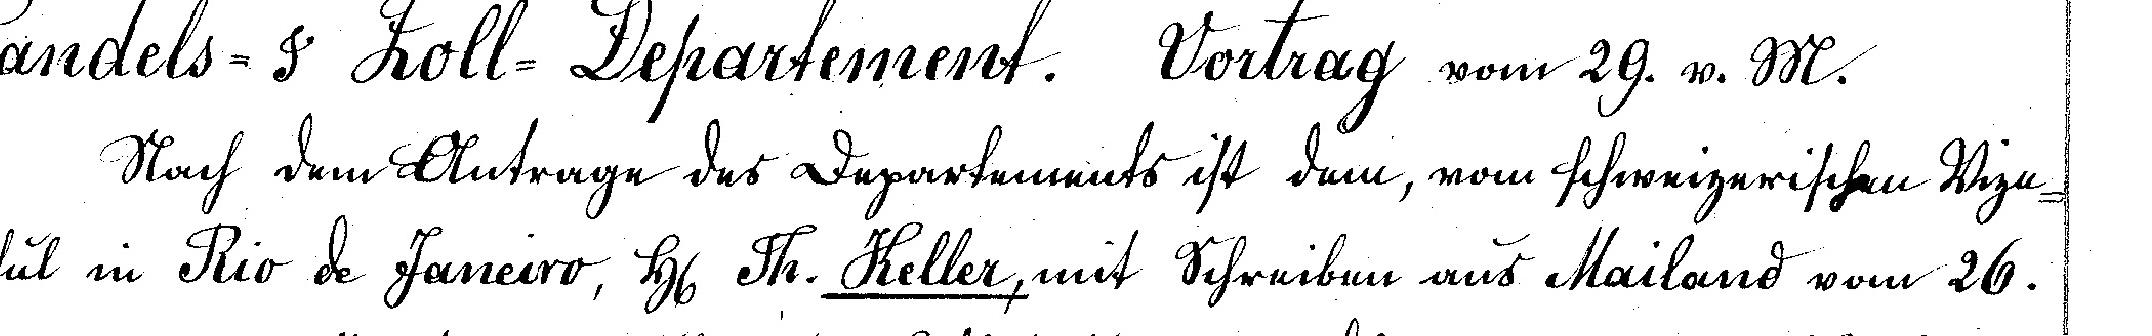 andels- & Zoll- Departement. Vortrag vom 29. v. M.
Nach dem Antrage des Departements ist dem, vom schweizerischen Vize-
sul in Rio de Janeiro, H. Th. Keller, mit Schreiben aus Mailand vom 26.